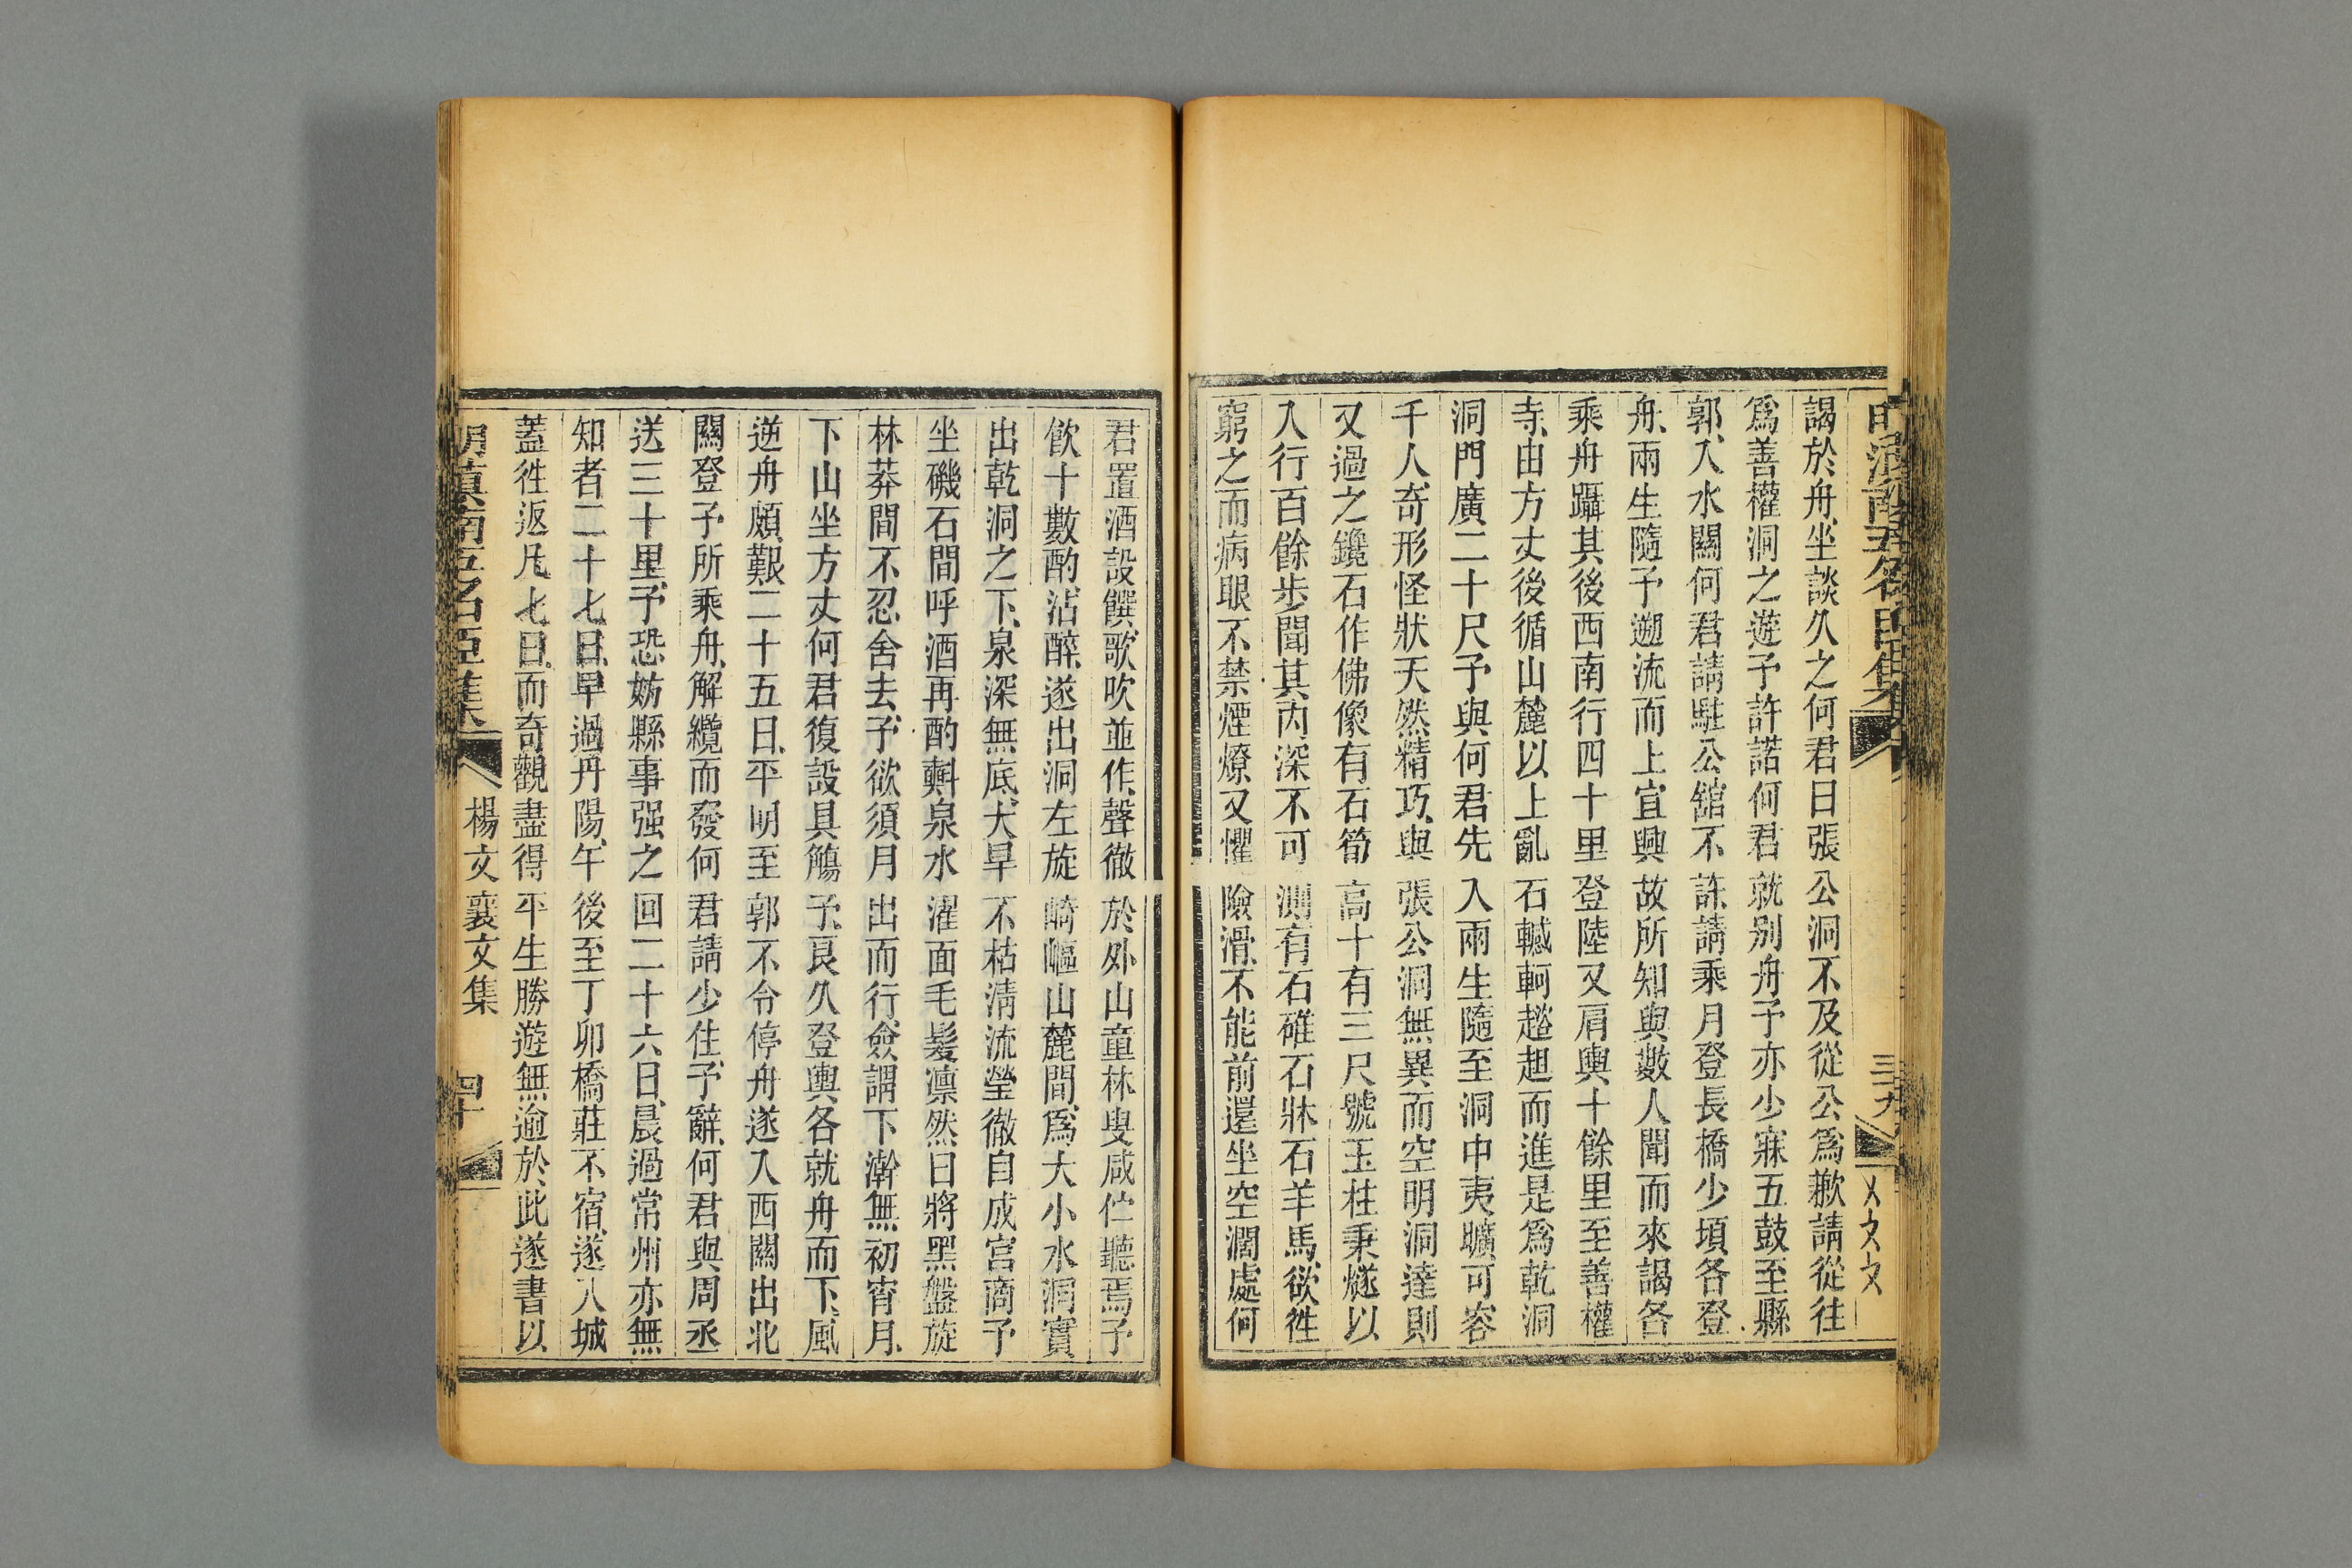 謁於舟坐談久之何君曰張公洞不及從公爲歉請從往
爲善權洞之遊予許諾何君就別舟予亦少寐五鼓至縣
郭入水關何君請駐公舘不許請乘月登長橋少頃各登
舟兩生隨予遡流而上宜興故所知與數人聞而來謁各
乘舟躡其後西南行四十里登陸又肩輿十餘里至善權
寺由方丈後循山麓以上亂石轗軻趦趄而進是爲乾洞
洞門廣二十尺予與何君先入兩生隨至洞中夷曠可容
千人奇形怪狀天然精巧與張公洞無異而空明洞達則
又過之鑱石作佛像有石筍高十有三尺號玉柱秉燧以
入行百餘步聞其內深不可測有石碓石牀石羊馬欲徃
窮之而病眼不禁煙燎又懼險滑不能前還坐空濶處何
君置酒設饌歌吹並作聲徹於外山童林叟咸伫聽焉予
飲十數酌沾醉遂出洞左旋崎嶇山麓間爲大小水洞實
出乾洞之下泉深無底大旱不枯淸流瑩徹自成宮商予
坐磯石間呼酒再酌㪺泉水濯面毛髮凛然日將黑盤旋
林莽間不忍舍去予欲須月出而行僉謂下澣無初宵月
下山坐方丈何君復設具觴予良久登輿各就舟而下風
逆舟頗艱二十五日平明至郭不令停舟遂入西關出北
關登予所乘舟解纜而發何君請少住予辭何君與周丞
送三十里予恐妨縣事强之回二十六日晨過常州亦無
知者二十七日早過丹陽午後至丁卯橋莊不宿遂入城
蓋徃返凡七日而奇觀盡得平生勝遊無逾於此遂書以
明滇南五名臣集 楊文襄文集 四十